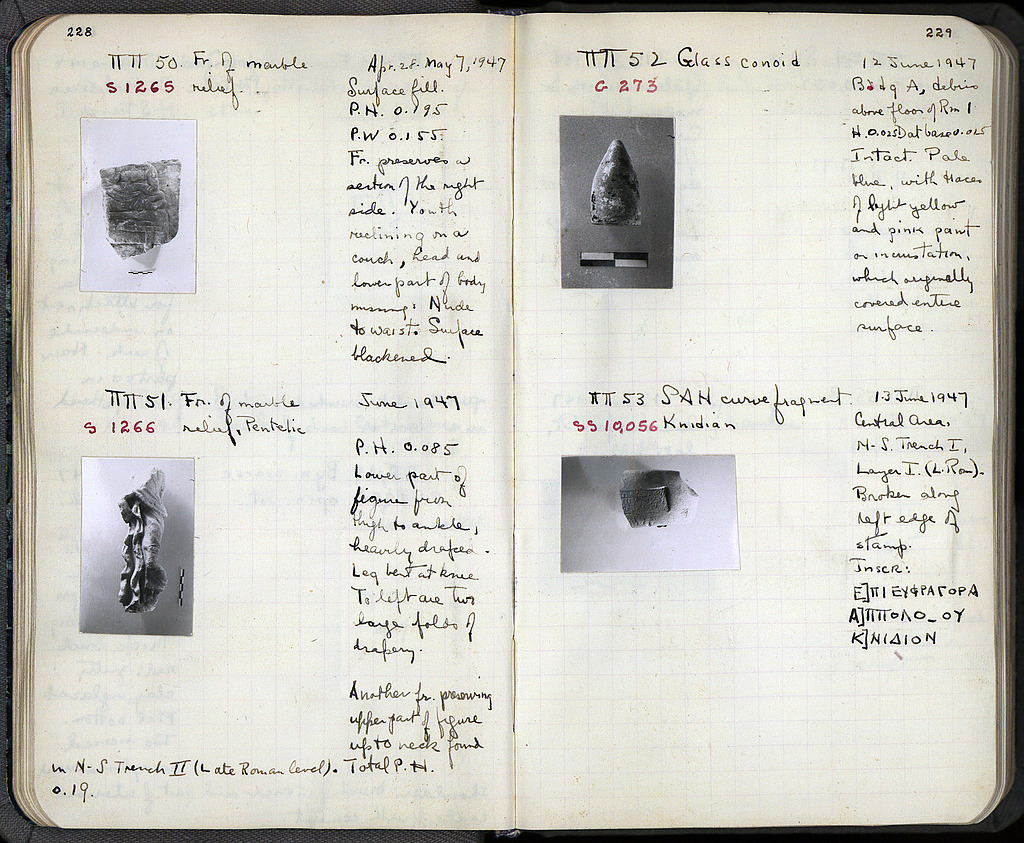 228
ΠΠ 50. Fr. of marble
S 1265 relief.
Apr. 28- May 7, 1947
Surface fill.
P.H. 0.195
P.W 0.155.
Fr. preserves a
section of the right
side. Youth
reclining on a
couch, head and
lower part of body
missing. Nude
to waist. Surface
blackened.
ΠΠ 51. Fr. of marble
S 1266 relief, Pentelic
June 1947
P.H. 0.085
Lower part of
figure from
thigh to ankle,
heavily draped.
Leg bent at knee
To left are two
large folds of
drapery.
Another fr. preserving
upper part of figure
up to neck found
in N-S Trench II (Late Roman level). Total P.H.
0.19.
229
ΠΠ 52 Glass conoid
G 273
12 June 1947
Bldg A, debris
above floor of Rm 1
H. 0.025 D at base 0.015
Intact. Pale
blue, with traces
of light yellow
and pink paint
or incrustation,
which originally
covered entire
surface.
ΠΠ 53 SAH curve fragment.
SS 10,056 Knidian
13 June 1947
Central Area,
N-S Trench I,
Layer I. (L. Rom).
Broken along
left edge of
stamp.
Inscr:
Ε]ΠΙΕΥΦΡΑΓΟΡΑ
Α]ΠΠΟΛΟ_ΟΥ
Κ]ΝΙΔΙΟΝ